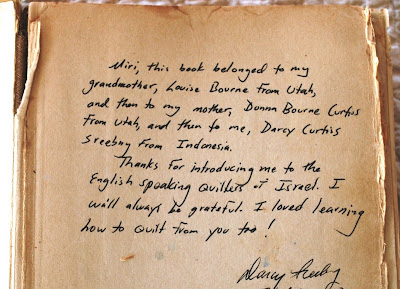 Miri, this book belonged to my
grandmother, Louise Bourne from Utah,
and then to my mother, Donna Bourne Curtis
from Utah, and then to me, Darcy Curtis
Sreebny from Indonesia.
Thanks for introducing me to the
English speaking quilters of Israel. I
will always be grateful. I loved learning
how to quilt from you too!
Darcy Sreebny